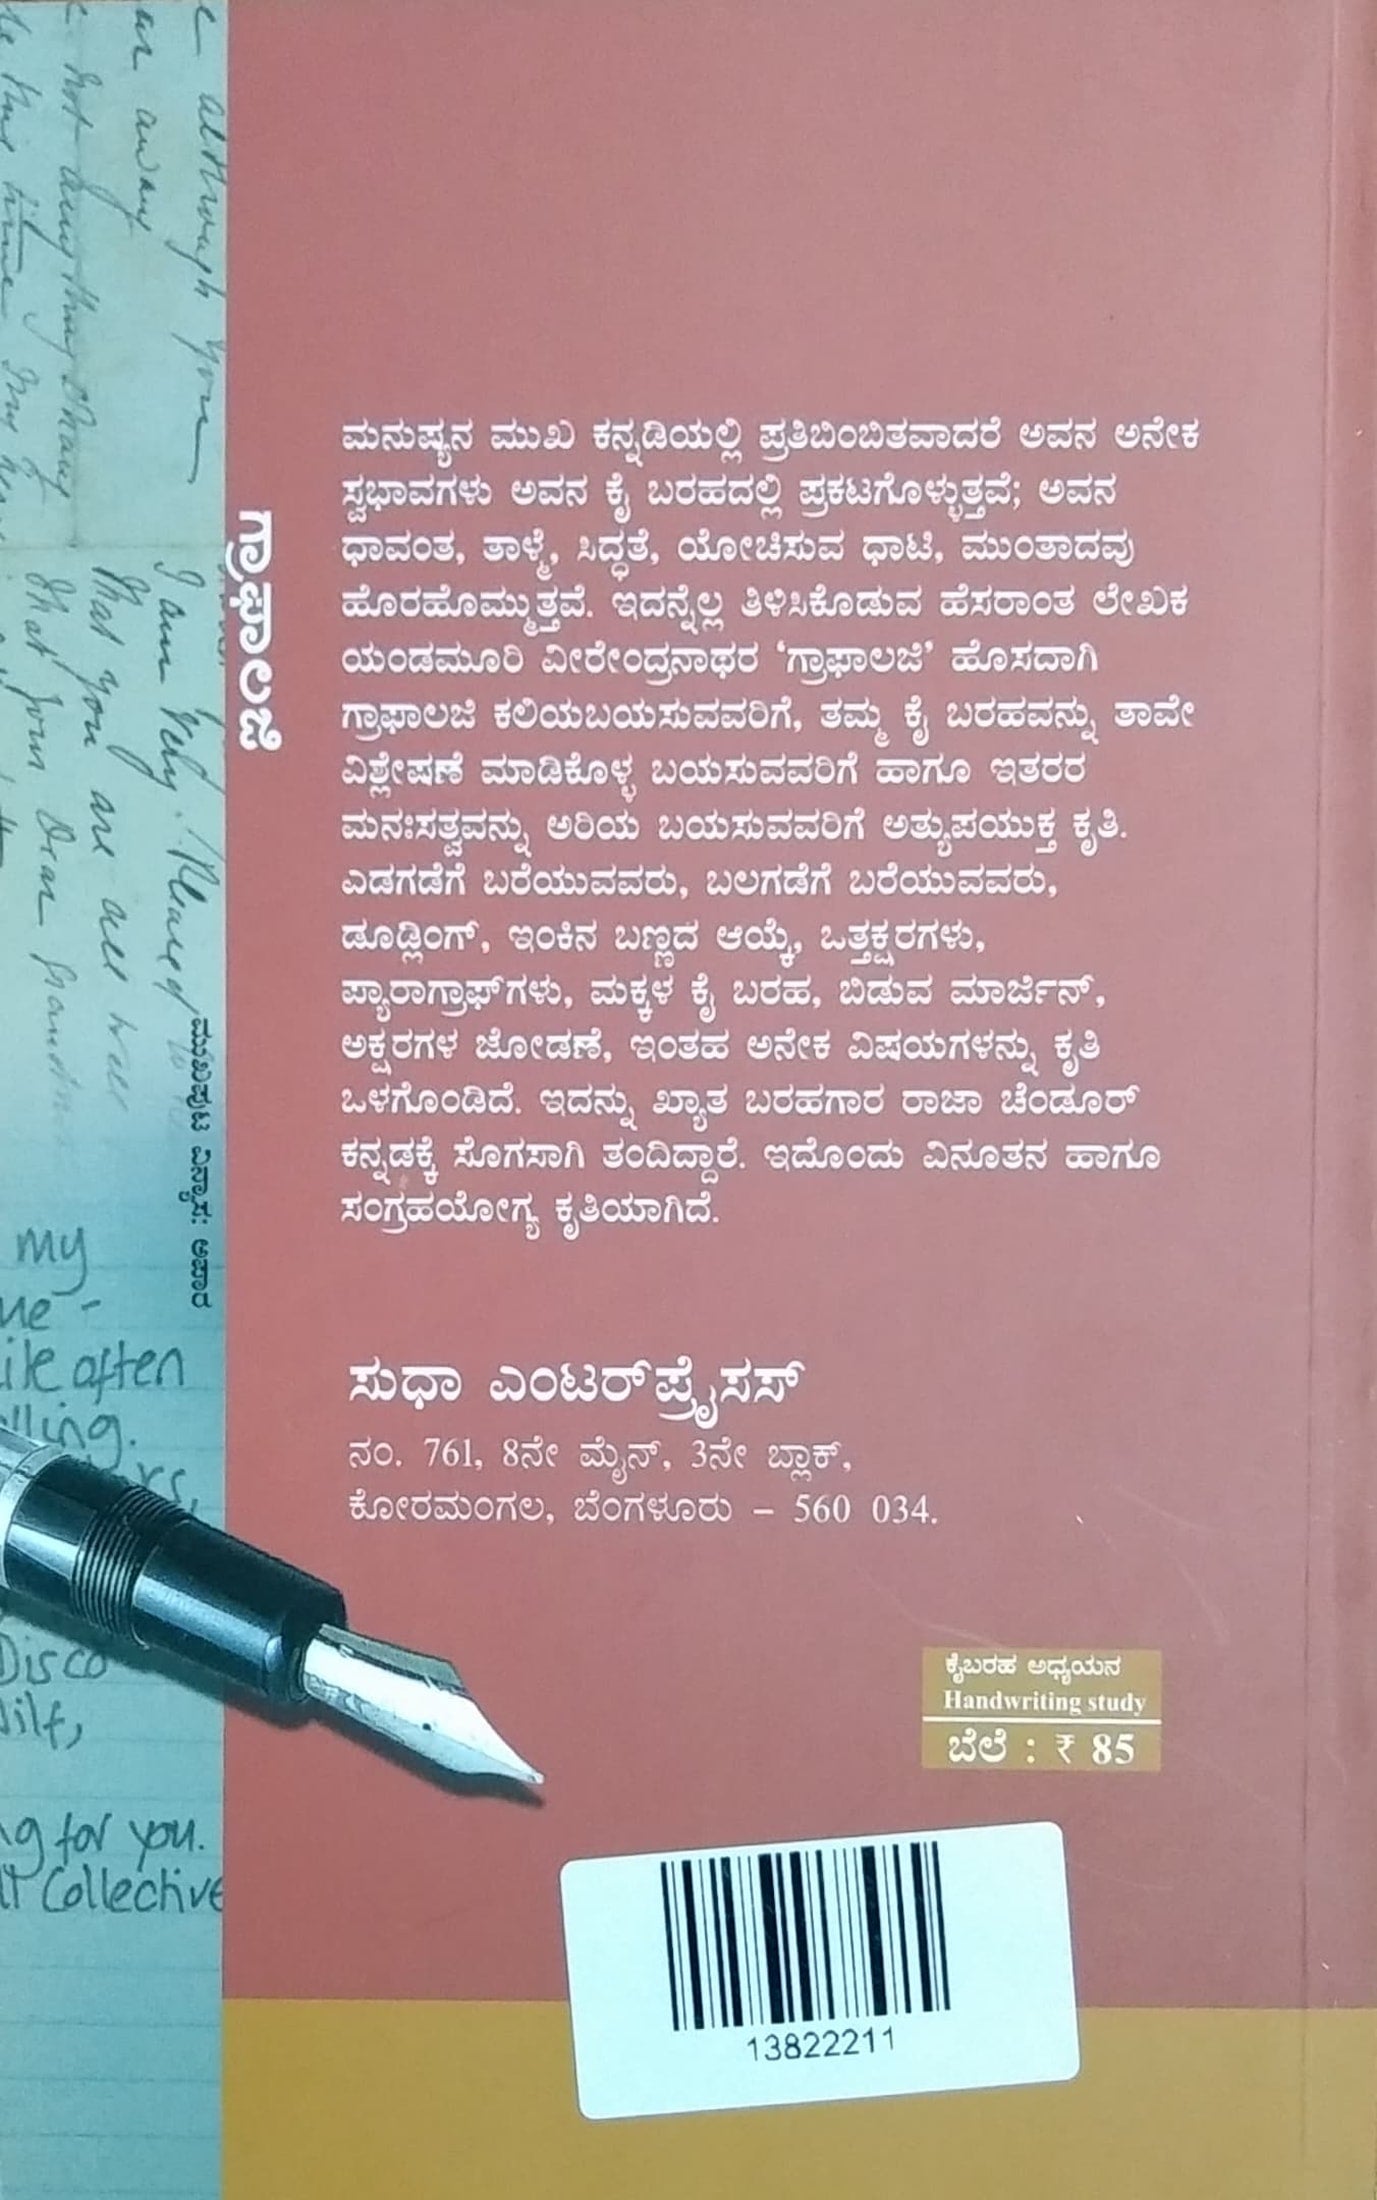 ಗ್ರಾಫಾಲಜಿ
ಮನುಷ್ಯನ ಮುಖ ಕನ್ನಡಿಯಲ್ಲಿ ಪ್ರತಿಬಿಂಬಿತವಾದರೆ ಅವನ ಅನೇಕ
ಸ್ವಭಾವಗಳು ಅವನ ಕೈ ಬರಹದಲ್ಲಿ ಪ್ರಕಟಗೊಳ್ಳುತ್ತವೆ; ಅವನ
ಧಾವಂತ, ತಾಳ್ಮೆ, ಸಿದ್ಧತೆ, ಯೋಚಿಸುವ ಧಾಟಿ, ಮುಂತಾದವು
ಹೊರಹೊಮ್ಮುತ್ತವೆ. ಇದನ್ನೆಲ್ಲ ತಿಳಿಸಿಕೊಡುವ ಹೆಸರಾಂತ ಲೇಖಕ
ಯಂಡಮೂರಿ ವೀರೇಂದ್ರನಾಥರ ‘ಗ್ರಾಫಾಲಜಿ’ ಹೊಸದಾಗಿ
ಗ್ರಾಫಾಲಜಿ ಕಲಿಯಬಯಸುವವರಿಗೆ, ತಮ್ಮ ಕೈ ಬರಹವನ್ನು ತಾವೇ
ವಿಶ್ಲೇಷಣೆ ಮಾಡಿಕೊಳ್ಳ ಬಯಸುವವರಿಗೆ ಹಾಗೂ ಇತರರ
ಮನಃಸತ್ವವನ್ನು ಅರಿಯ ಬಯಸುವವರಿಗೆ ಅತ್ಯುಪಯುಕ್ತ ಕೃತಿ.
ಎಡಗಡೆಗೆ ಬರೆಯುವವರು, ಬಲಗಡೆಗೆ ಬರೆಯುವವರು,
ಡೂಡ್ಲಿಂಗ್, ಇಂಕಿನ ಬಣ್ಣದ ಆಯ್ಕೆ, ಒತ್ತಕ್ಷರಗಳು,
ಪ್ಯಾರಾಗ್ರಾಫ್‌ಗಳು, ಮಕ್ಕಳ ಕೈ ಬರಹ, ಬಿಡುವ ಮಾರ್ಜಿನ್,
ಅಕ್ಷರಗಳ ಜೋಡಣೆ, ಇಂತಹ ಅನೇಕ ವಿಷಯಗಳನ್ನು ಕೃತಿ
ಒಳಗೊಂಡಿದೆ. ಇದನ್ನು ಖ್ಯಾತ ಬರಹಗಾರ ರಾಜಾ ಚೆಂಡೂರ್
ಕನ್ನಡಕ್ಕೆ ಸೊಗಸಾಗಿ ತಂದಿದ್ದಾರೆ. ಇದೊಂದು ವಿನೂತನ ಹಾಗೂ
ಸಂಗ್ರಹಯೋಗ್ಯ ಕೃತಿಯಾಗಿದೆ.
ಸುಧಾ ಎಂಟರ್‌ಪ್ರೈಸಸ್
ನಂ. 761, 8ನೇ ಮೈನ್, 3ನೇ ಬ್ಲಾಕ್,
ಕೋರಮಂಗಲ, ಬೆಂಗಳೂರು – 560 034.
ಕೈಬರಹ ಅಧ್ಯಯನ
Handwriting study
ಬೆಲೆ : ₹ 85
13822211
ಮುಖಪುಟ ವಿನ್ಯಾಸ: ಅಪಾರ
although you
away
I am very pleased
that you are all well
that your dear
my
often
for you.
Collective